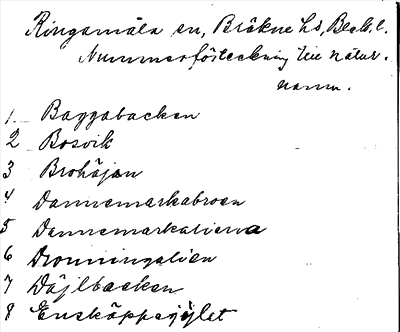 Ringamåla sn, Bräkne hs, Blek. l.
Nummerförteckning till natur-
namn.
1 Baggabacken
2 Bosvik
3 Brohöjen
4 Dannemarkabroen
5 Dannemarkalierna
6 Dronningalien
7 Döjlbacken
8 Enskäppegylet